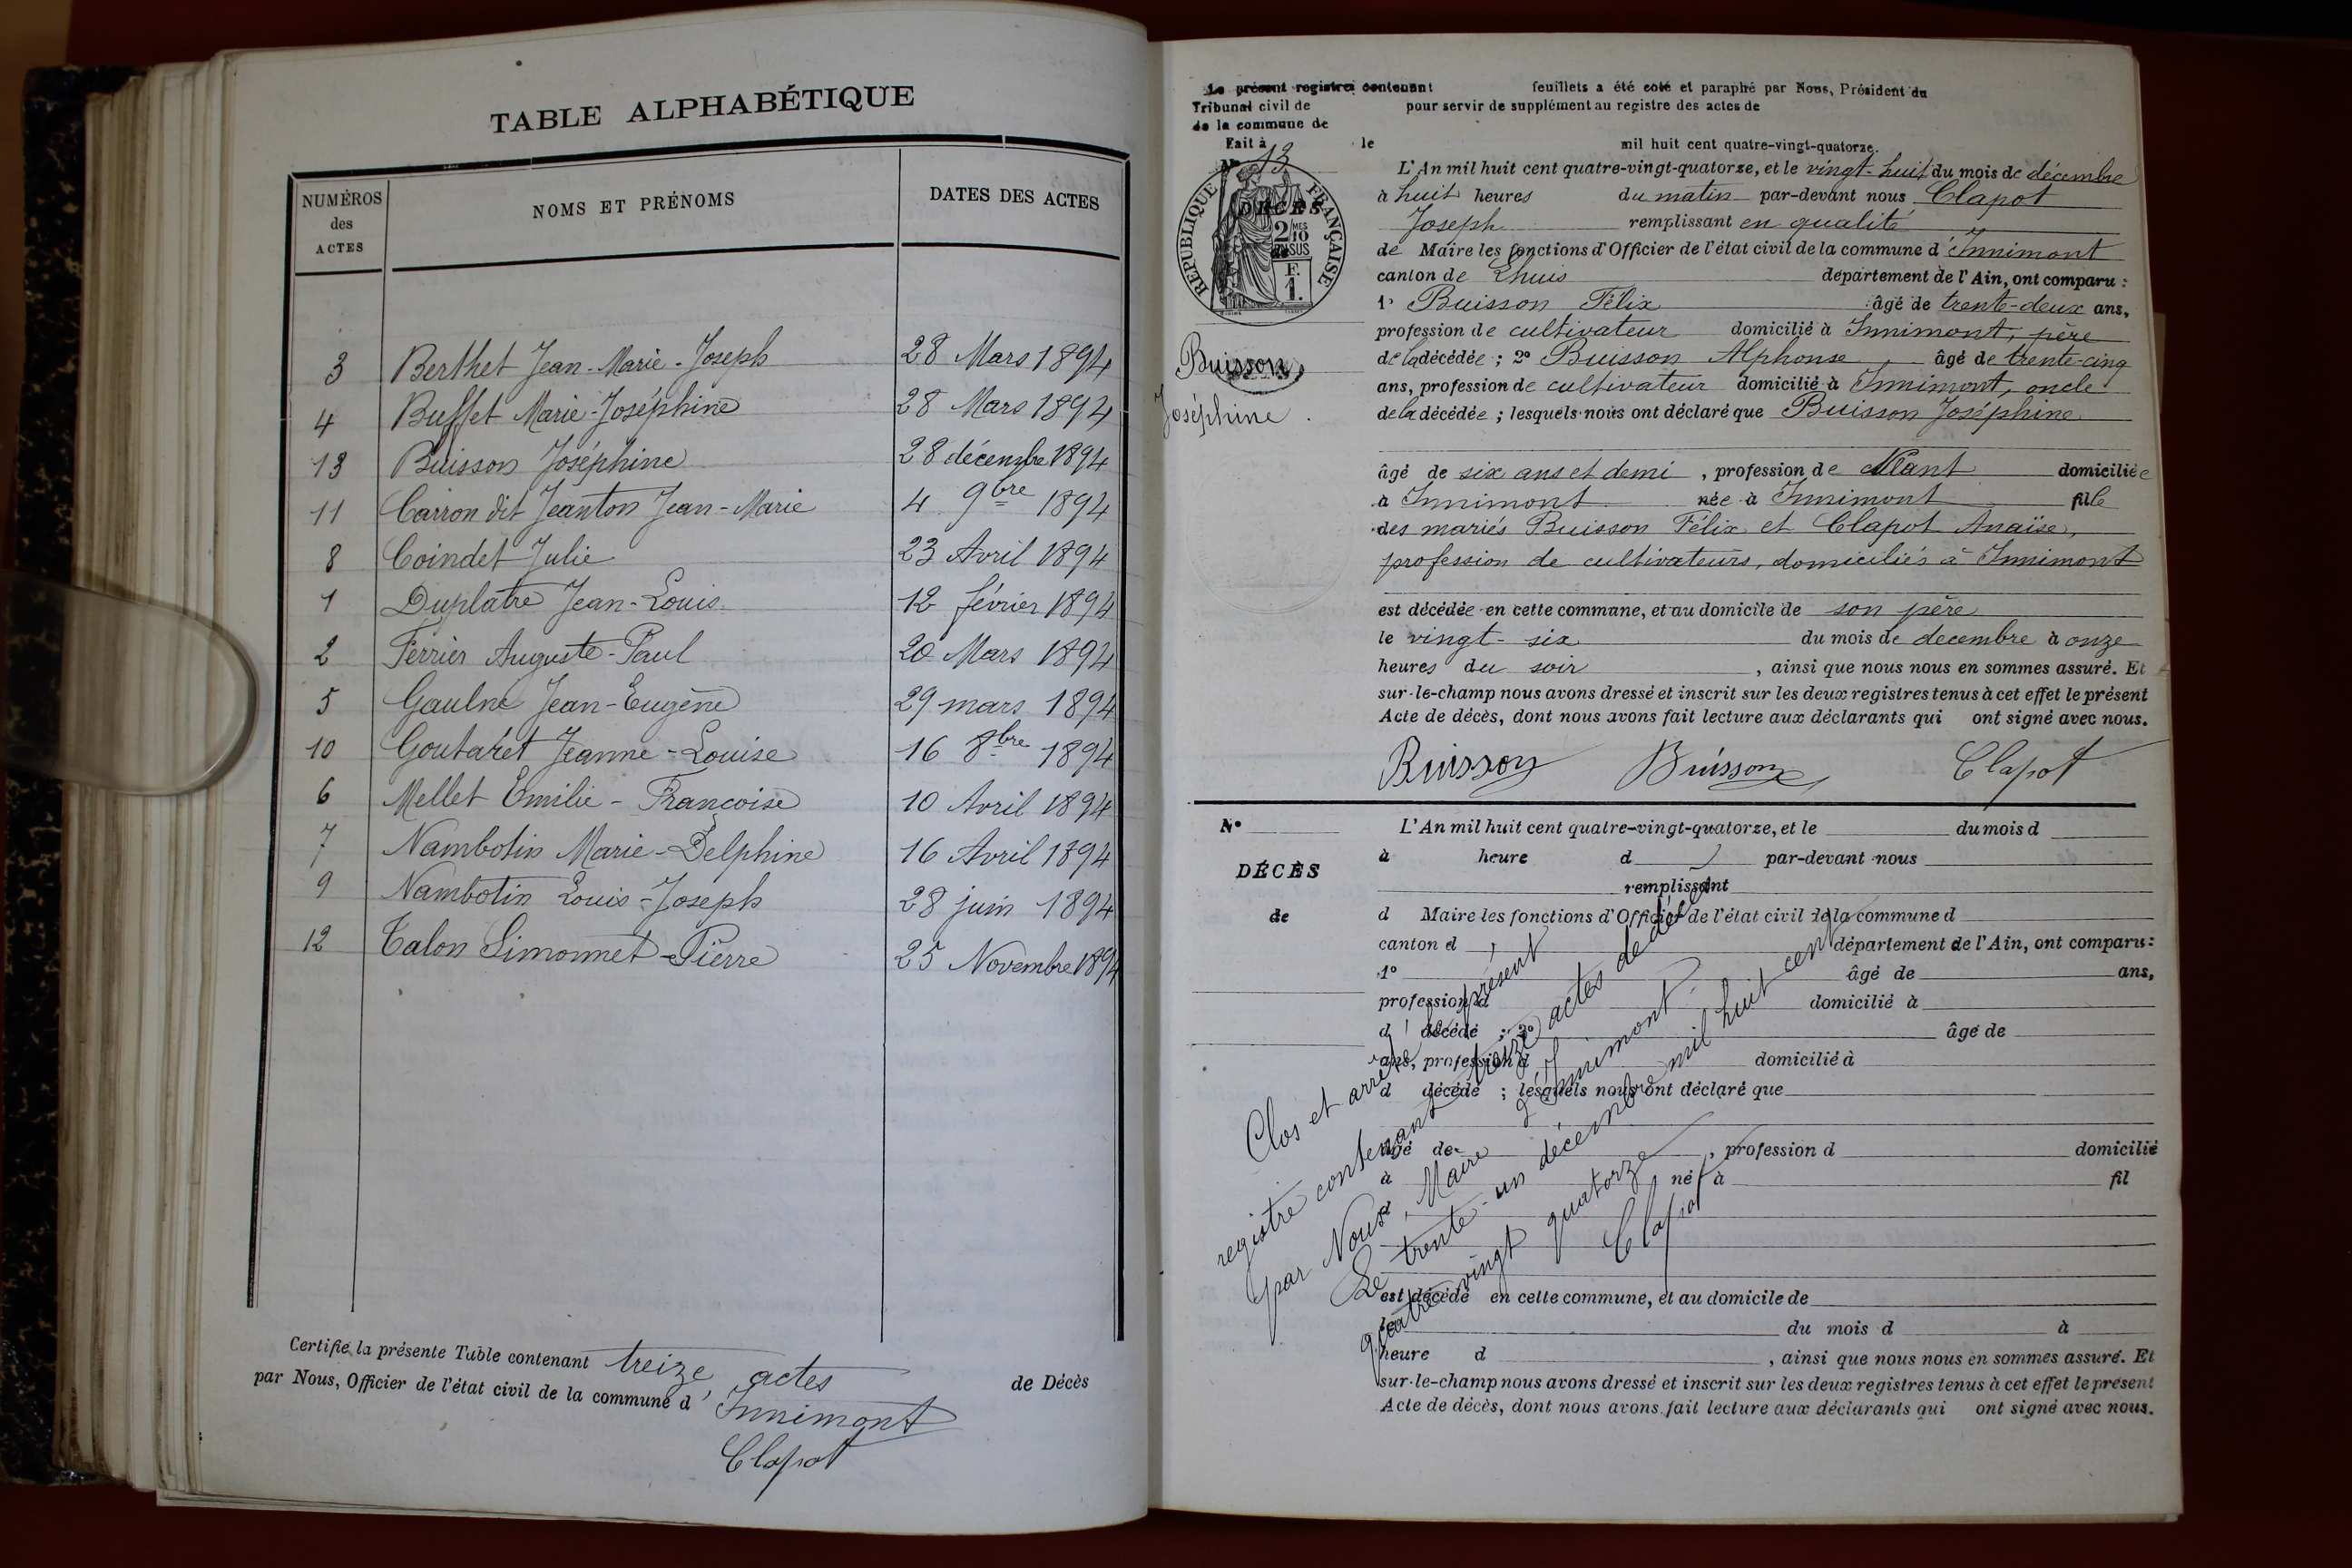 TABLE ALPHABÉTIQUE
NUMÉROS des ACTES
NOMS ET PRÉNOMS
DATES DES ACTES
3 Berthet Jean-Marie-Joseph 28 Mars 1894
4 Buffet Marie-Joséphine 28 Mars 1894
13 Buisson Joséphine 28 décembre 1894
11 Carron dit Jeanton Jean-Marie 4 9bre 1894
8 Coindet Julie 23 Avril 1894
1 Duplatre Jean-Louis 12 février 1894
2 Ferrier Auguste-Paul 20 Mars 1894
5 Gaulne Jean-Eugène 29 mars 1894
10 Goutaret Jeanne-Louise 16 8bre 1894
6 Mellet Emilie-Françoise 10 Avril 1894
7 Nambotin Marie-Delphine 16 Avril 1894
9 Nambotin Louis-Joseph 28 juin 1894
12 Talon Simonnet-Pierre 25 Novembre 1894
Certifié la présente Table contenant treize actes de Décès
par Nous, Officier de l'état civil de la commune d'Innimont
Clapot
Le présent registre contenant feuillets a été coté et paraphé par Nous, Président du
Tribunal civil de pour servir de supplément au registre des actes de
de la commune de
Fait à le mil huit cent quatre-vingt-quatorze.
N° 13
DÉCÈS
de
RÉPUBLIQUE FRANÇAISE
2 MES
10
EN SUS
F.
1.
Buisson
Joséphine
L'An mil huit cent quatre-vingt-quatorze, et le vingt-huit du mois de décembre
à huit heures du matin par-devant nous Clapot
Joseph remplissant en qualité
de Maire les fonctions d'Officier de l'état civil de la commune d'Innimont
canton de Lhuis département de l'Ain, ont comparu :
1° Buisson Félix âgé de trente-deux ans,
profession de cultivateur domicilié à Innimont, père
de la décédée ; 2° Buisson Alphonse, âgé de trente-cinq
ans, profession de cultivateur domicilié à Innimont, oncle
de la décédée ; lesquels nous ont déclaré que Buisson Joséphine
âgé de six ans et demi, profession de Néant domiciliée
à Innimont née à Innimont fille
des mariés Buisson Félix et Clapot Anaïse,
profession de cultivateurs, domiciliés à Innimont
est décédée en cette commune, et au domicile de son père
le vingt-six du mois de decembre à onze
heures du soir, ainsi que nous nous en sommes assuré. Et
sur-le-champ nous avons dressé et inscrit sur les deux registres tenus à cet effet le présent
Acte de décès, dont nous avons fait lecture aux déclarants qui ont signé avec nous.
Buisson Buisson Clapot
N°
DÉCÈS
de
L'An mil huit cent quatre-vingt-quatorze, et le du mois d
à heure d par-devant nous
remplissant
d Maire les fonctions d'Officier de l'état civil de la commune d
canton d département de l'Ain, ont comparu :
1° âgé de ans,
profession d domicilié à
d décédé ; 2° âgé de
ans, profession d domicilié à
d décédé ; lesquels nous ont déclaré que
âgé de , profession d domicilié
à né à fil
d
est décédé en cette commune, et au domicile de
le du mois d à
heure d , ainsi que nous nous en sommes assuré. Et
sur-le-champ nous avons dressé et inscrit sur les deux registres tenus à cet effet le présent
Acte de décès, dont nous avons fait lecture aux déclarants qui ont signé avec nous.
Clos et arrêté le présent
registre contenant treize actes de décès
par Nous, Maire d'Innimont.
Le trente-un décembre mil huit cent
quatre-vingt quatorze
Clapot